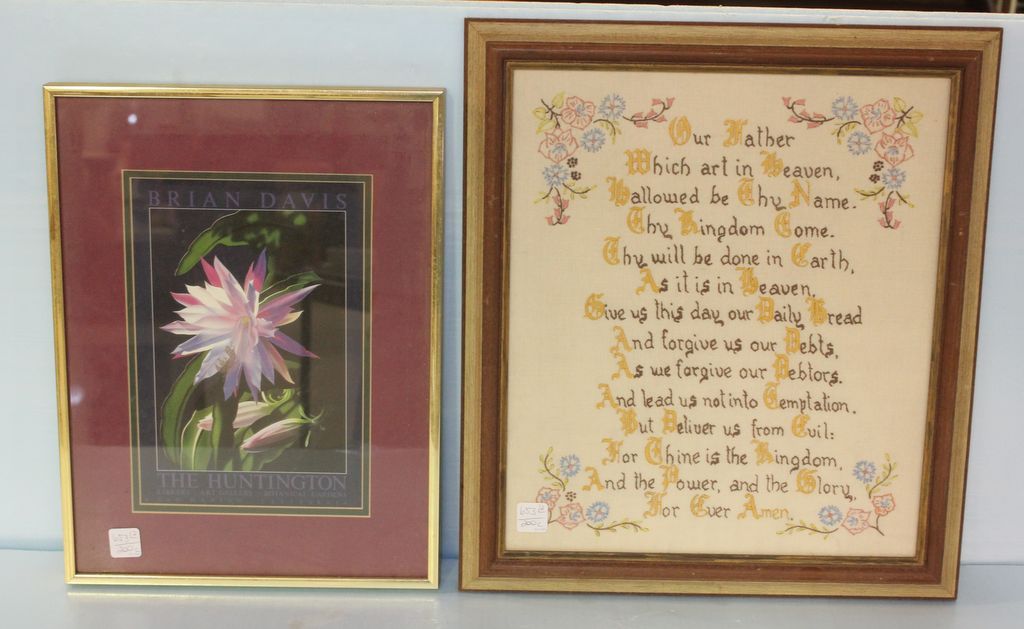 BRIAN DAVIS
THE HUNTINGTON
LIBRARY ART GALLERY BOTANICAL GARDENS
Our Father
Which art in Heaven,
Hallowed be Thy Name.
Thy Kingdom Come.
Thy will be done in Earth,
As it is in Heaven,
Give us this day our Daily Bread
And forgive us our Debts,
As we forgive our Debtors.
And lead us not into Temptation.
But Deliver us from Evil:
For Thine is the Kingdom,
And the Power, and the Glory,
For Ever Amen.